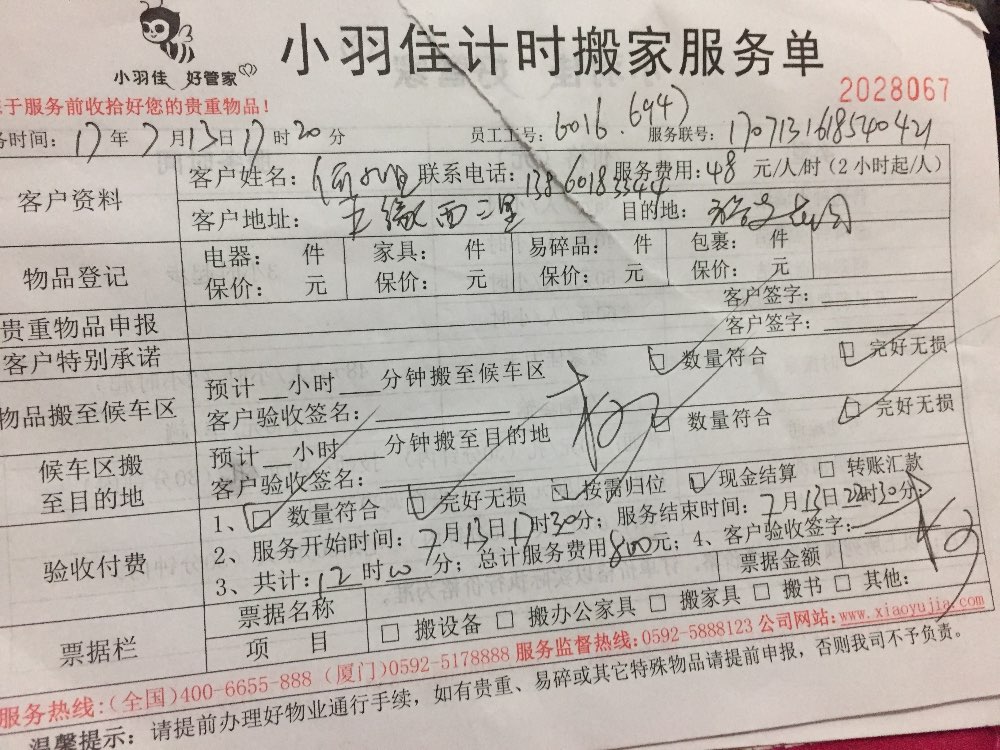 小羽佳 好管家
小羽佳计时搬家服务单
2028067
于服务前收拾好您的贵重物品！
务时间：17年7月13日17时20分 员工工号：6016.6947 服务联号：1707131618540421
客户资料
客户姓名： 联系电话：13860183344 服务费用：48元/人/时（2小时起/人）
客户地址：五缘西二里 目的地：
物品登记
电器： 件 家具： 件 易碎品： 件 包裹： 件
保价： 元 保价： 元 保价： 元 保价： 元
贵重物品申报 客户签字：
客户特别承诺 客户签字：
物品搬至候车区
预计__小时___分钟搬至候车区 数量符合 完好无损
客户验收签名：
候车区搬至目的地
预计__小时___分钟搬至目的地 数量符合 完好无损
客户验收签名：
验收付费
1、 数量符合 完好无损 按需归位 现金结算 转账汇款
2、服务开始时间：7月13日17时30分；服务结束时间：7月13日22时30分；
3、共计：12时00分；总计服务费用800元；4、客户验收签字：
票据栏
票据名称 票据金额
项 目 搬设备 搬办公家具 搬家具 搬书 其他：
服务热线：(全国)400-6655-888 (厦门)0592-5178888 服务监督热线：0592-5888123 公司网站：www.xiaoyujia.com
温馨提示：请提前办理好物业通行手续，如有贵重、易碎或其它特殊物品请提前申报，否则我司不予负责。